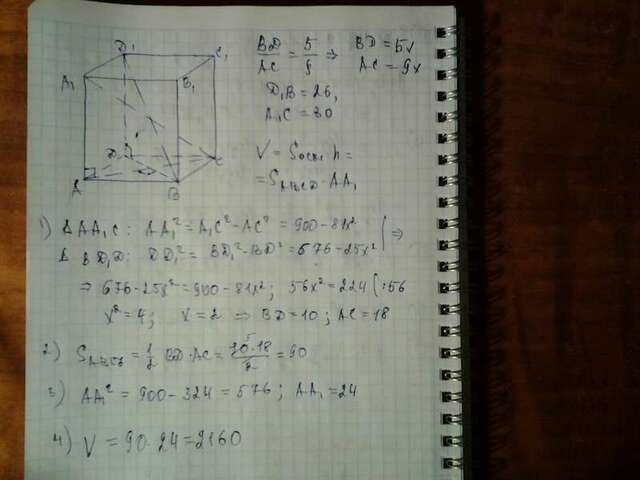 D₁ C₁
A₁ B₁
D C
A B
BD/AC = 5/9 ⇒ BD = 5x
AC = 9x
D₁B = 26,
A₁C = 30
V = Sосн · h =
= S_ABCD · AA₁
1) Δ AA₁C: AA₁² = A₁C² - AC² = 900 - 81x² | ⇒
Δ BD₁D: DD₁² = BD₁² - BD² = 676 - 25x² |
⇒ 676 - 25x² = 900 - 81x²; 56x² = 224 | :56
x² = 4; x = 2 ⇒ BD = 10; AC = 18
2) S_ABCD = 1/2 BD · AC = 10·18/2 = 90
3) AA₁² = 900 - 324 = 576; AA₁ = 24
4) V = 90 · 24 = 2160